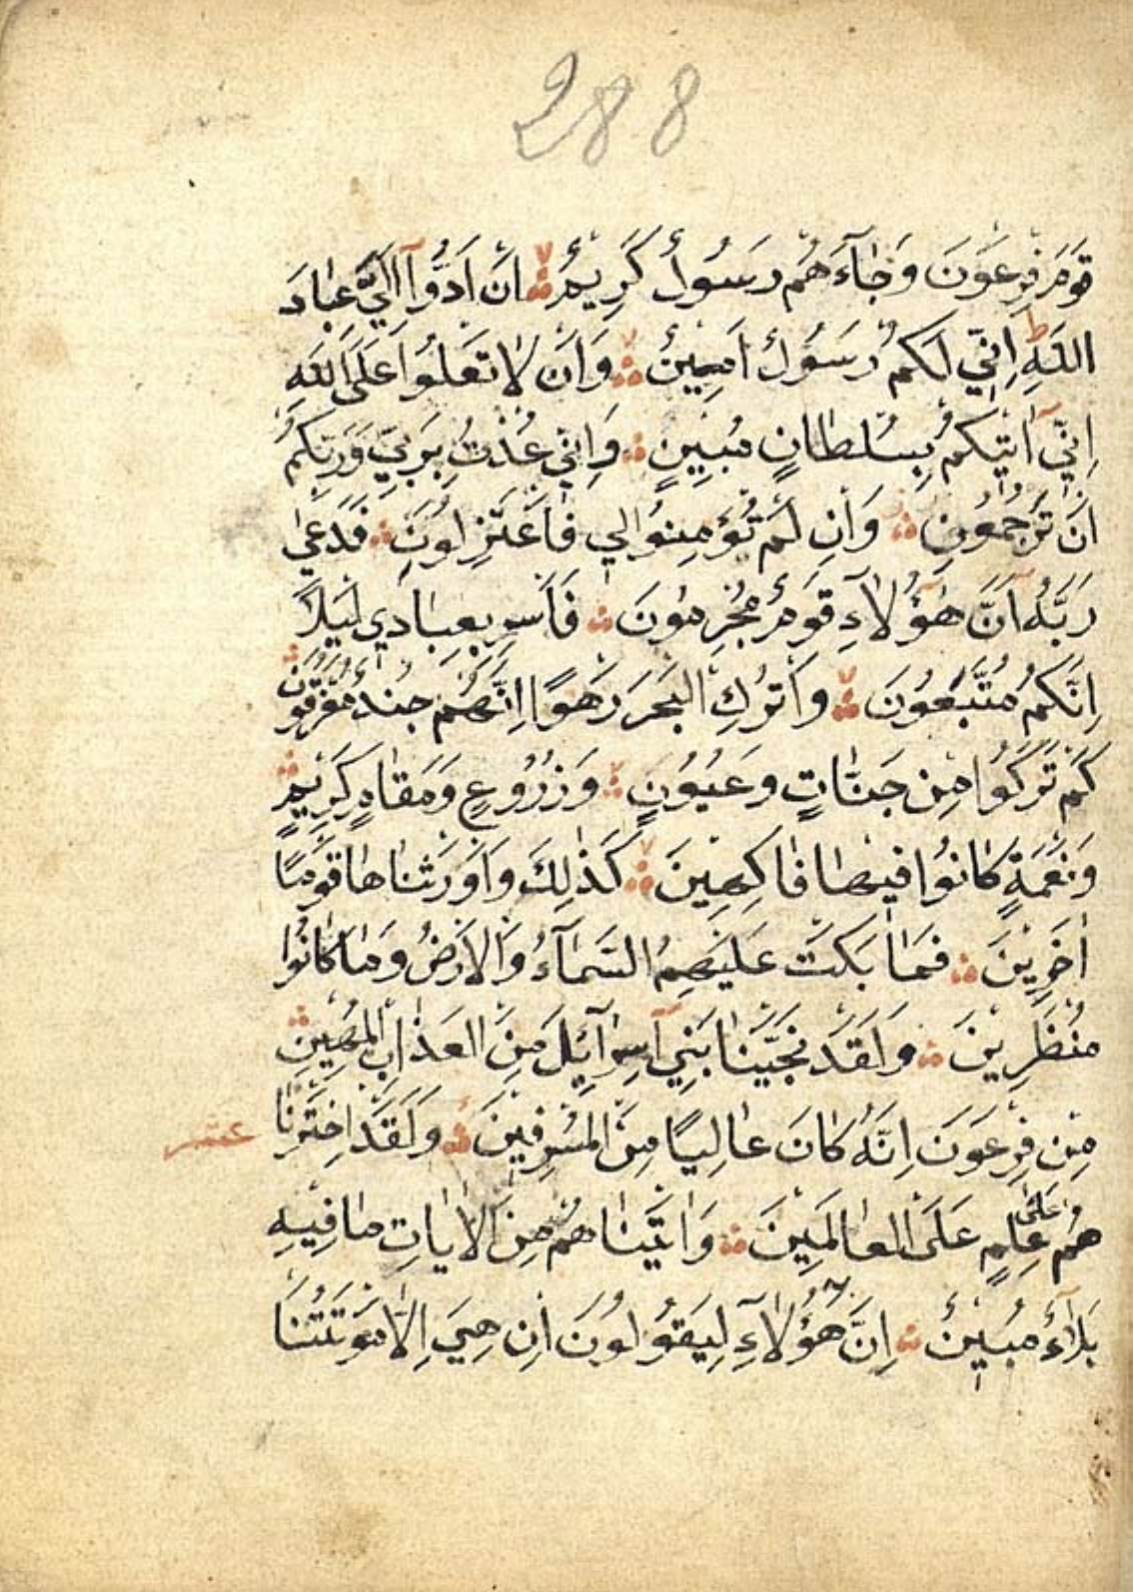 288
قَوْمَ فِرْعَوْنَ وَجَاءَهُمْ رَسُولٌ كَرِيمٌ اَنْ اَدُّوا اِلَيَّ عِبَادَ
اللهِ اِنِّي لَكُمْ رَسُولٌ اَمِينٌ وَاَنْ لَا تَعْلُوا عَلَى اللهِ
اِنِّي آتِيكُمْ بِسُلْطَانٍ مُبِينٍ وَاِنِّي عُذْتُ بِرَبِّي وَرَبِّكُمْ
اَنْ تَرْجُمُونِ وَاِنْ لَمْ تُؤْمِنُوا لِي فَاعْتَزِلُونِ فَدَعَى
رَبَّهُ اَنَّ هٰؤُلَاءِ قَوْمٌ مُجْرِمُونَ فَاَسْرِ بِعِبَادِي لَيْلًا
اِنَّكُمْ مُتَّبَعُونَ وَاتْرُكِ الْبَحْرَ رَهْوًا اِنَّهُمْ جُنْدٌ مُغْرَقُونَ
كَمْ تَرَكُوا مِنْ جَنَّاتٍ وَعُيُونٍ وَزُرُوعٍ وَمَقَامٍ كَرِيمٍ
وَنَعْمَةٍ كَانُوا فِيهَا فَاكِهِينَ كَذٰلِكَ وَاَوْرَثْنَاهَا قَوْمًا
اٰخَرِينَ فَمَا بَكَتْ عَلَيْهِمُ السَّمَاءُ وَالْاَرْضُ وَمَا كَانُوا
مُنْظَرِينَ وَلَقَدْ نَجَّيْنَا بَنِي اِسْرَائِيلَ مِنَ الْعَذَابِ الْمُهِينِ
مِنْ فِرْعَوْنَ اِنَّهُ كَانَ عَالِيًا مِنَ الْمُسْرِفِينَ وَلَقَدِ اخْتَرْنَا
عشر
هُمْ عَلَى عِلْمٍ عَلَى الْعَالَمِينَ وَاٰتَيْنَاهُمْ مِنَ الْاٰيَاتِ مَا فِيهِ
بَلَاءٌ مُبِينٌ اِنَّ هٰؤُلَاءِ لَيَقُولُونَ اِنْ هِيَ اِلَّا مَوْتَتُنَا